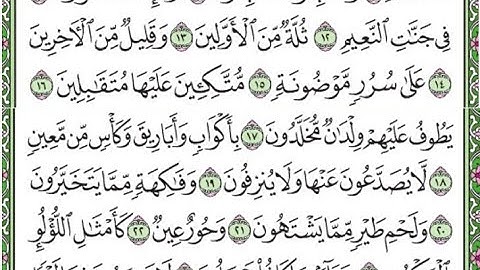 فِى جَنَّٰتِ ٱلنَّعِيمِ ١٢ ثُلَّةٌ مِّنَ ٱلْأَوَّلِينَ ١٣ وَقَلِيلٌ مِّنَ ٱلْآخِرِينَ
١٤ عَلَىٰ سُرُرٍ مَّوْضُونَةٍ ١٥ مُّتَّكِـِٔينَ عَلَيْهَا مُتَقَٰبِلِينَ ١٦
يَطُوفُ عَلَيْهِمْ وِلْدَٰنٌ مُّخَلَّدُونَ ١٧ بِأَكْوَابٍ وَأَبَارِيقَ وَكَأْسٍ مِّن مَّعِينٍ
١٨ لَّا يُصَدَّعُونَ عَنْهَا وَلَا يُنزِفُونَ ١٩ وَفَٰكِهَةٍ مِّمَّا يَتَخَيَّرُونَ
٢٠ وَلَحْمِ طَيْرٍ مِّمَّا يَشْتَهُونَ ٢١ وَحُورٌ عِينٌ ٢٢ كَأَمْثَٰلِ ٱللُّؤْلُؤِ